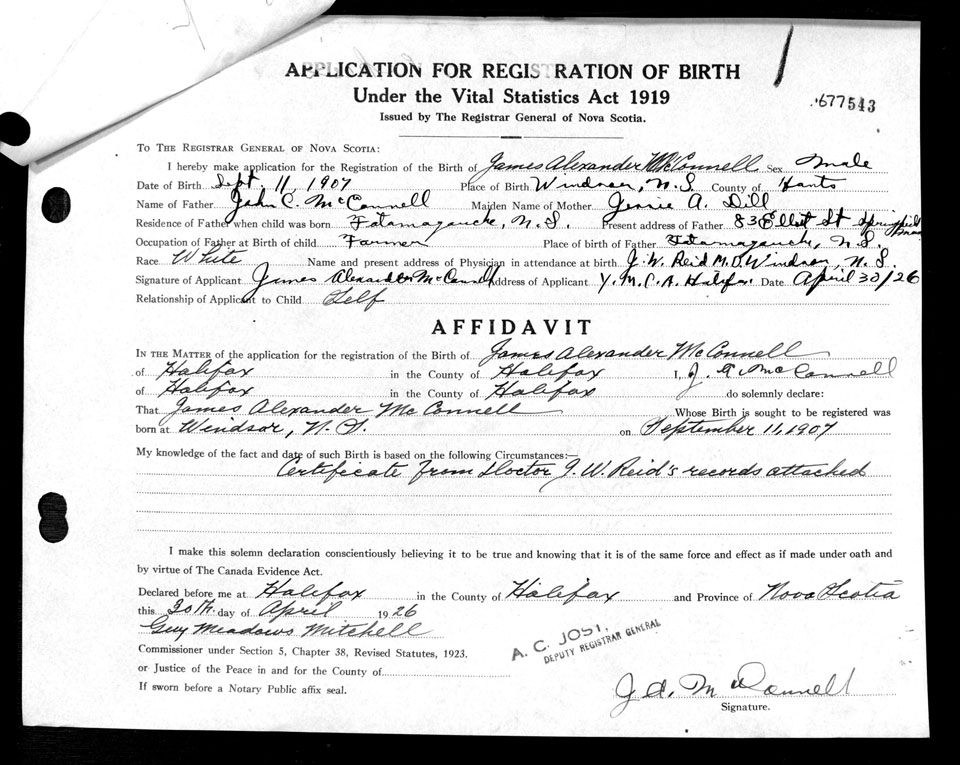 APPLICATION FOR REGISTRATION OF BIRTH
Under the Vital Statistics Act 1919
Issued by The Registrar General of Nova Scotia.
677543
TO THE REGISTRAR GENERAL OF NOVA SCOTIA:
I hereby make application for the Registration of the Birth of James Alexander McConnell Sex male
Date of Birth Sept. 11, 1907 Place of Birth Windsor, N.S. County of Hants
Name of Father John C. McConnell Maiden Name of Mother Jennie A. Dill
Residence of Father when child was born Tatamagouche, N.S. Present address of Father 83 Elliot St
Occupation of Father at Birth of child Farmer Place of birth of Father Tatamagouche, N.S.
Race White Name and present address of Physician in attendance at birth J. W. Reid M.D. Windsor, N.S.
Signature of Applicant James Alexander McConnell Address of Applicant Y.M.C.A. Halifax. Date April 30/26
Relationship of Applicant to Child Self
AFFIDAVIT
IN THE MATTER of the application for the registration of the Birth of James Alexander McConnell
of Halifax in the County of Halifax I, J. A. McConnell
of Halifax in the County of Halifax do solemnly declare:
That James Alexander McConnell Whose Birth is sought to be registered was
born at Windsor, N.S. on September 11, 1907
My knowledge of the fact and date of such Birth is based on the following Circumstances:—
Certificate from Doctor J. W. Reid's records attached
I make this solemn declaration conscientiously believing it to be true and knowing that it is of the same force and effect as if made under oath and
by virtue of The Canada Evidence Act.
Declared before me at Halifax in the County of Halifax and Province of Nova Scotia
this 30th day of April 1926
Guy Meadows Mitchell
Commissioner under Section 5, Chapter 38, Revised Statutes, 1923.
A. C. JOST,
DEPUTY REGISTRAR GENERAL
or Justice of the Peace in and for the County of
If sworn before a Notary Public affix seal.
J. A. McConnell
Signature.